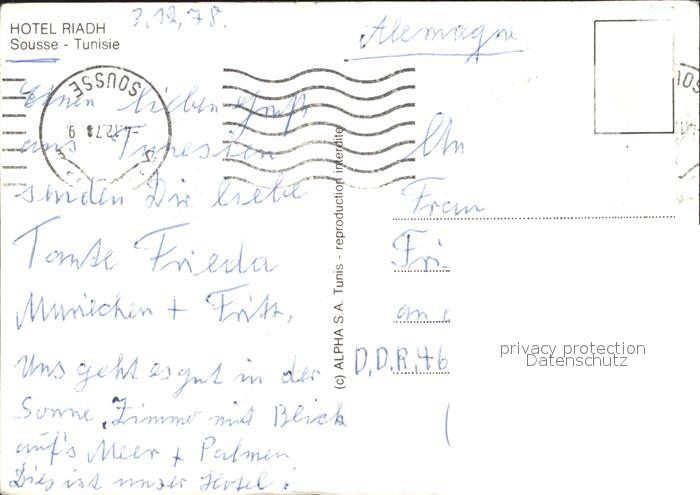 HOTEL RIADH
Sousse - Tunisie
3.12.78.
Einen lieben Gruß
aus Tunesien
senden Dir liebe
Tante Frieda
+ Fritz.
Uns geht es gut in der
Sonne, Zimmer mit Blick
auf's Meer + Palmen
Dies ist unser Hotel!
(c) ALPHA S.A. Tunis - reproduction interdite
SOUSSE
Alemagne
An
Frau
Fri
D.D.R. 46
privacy protection
Datenschutz